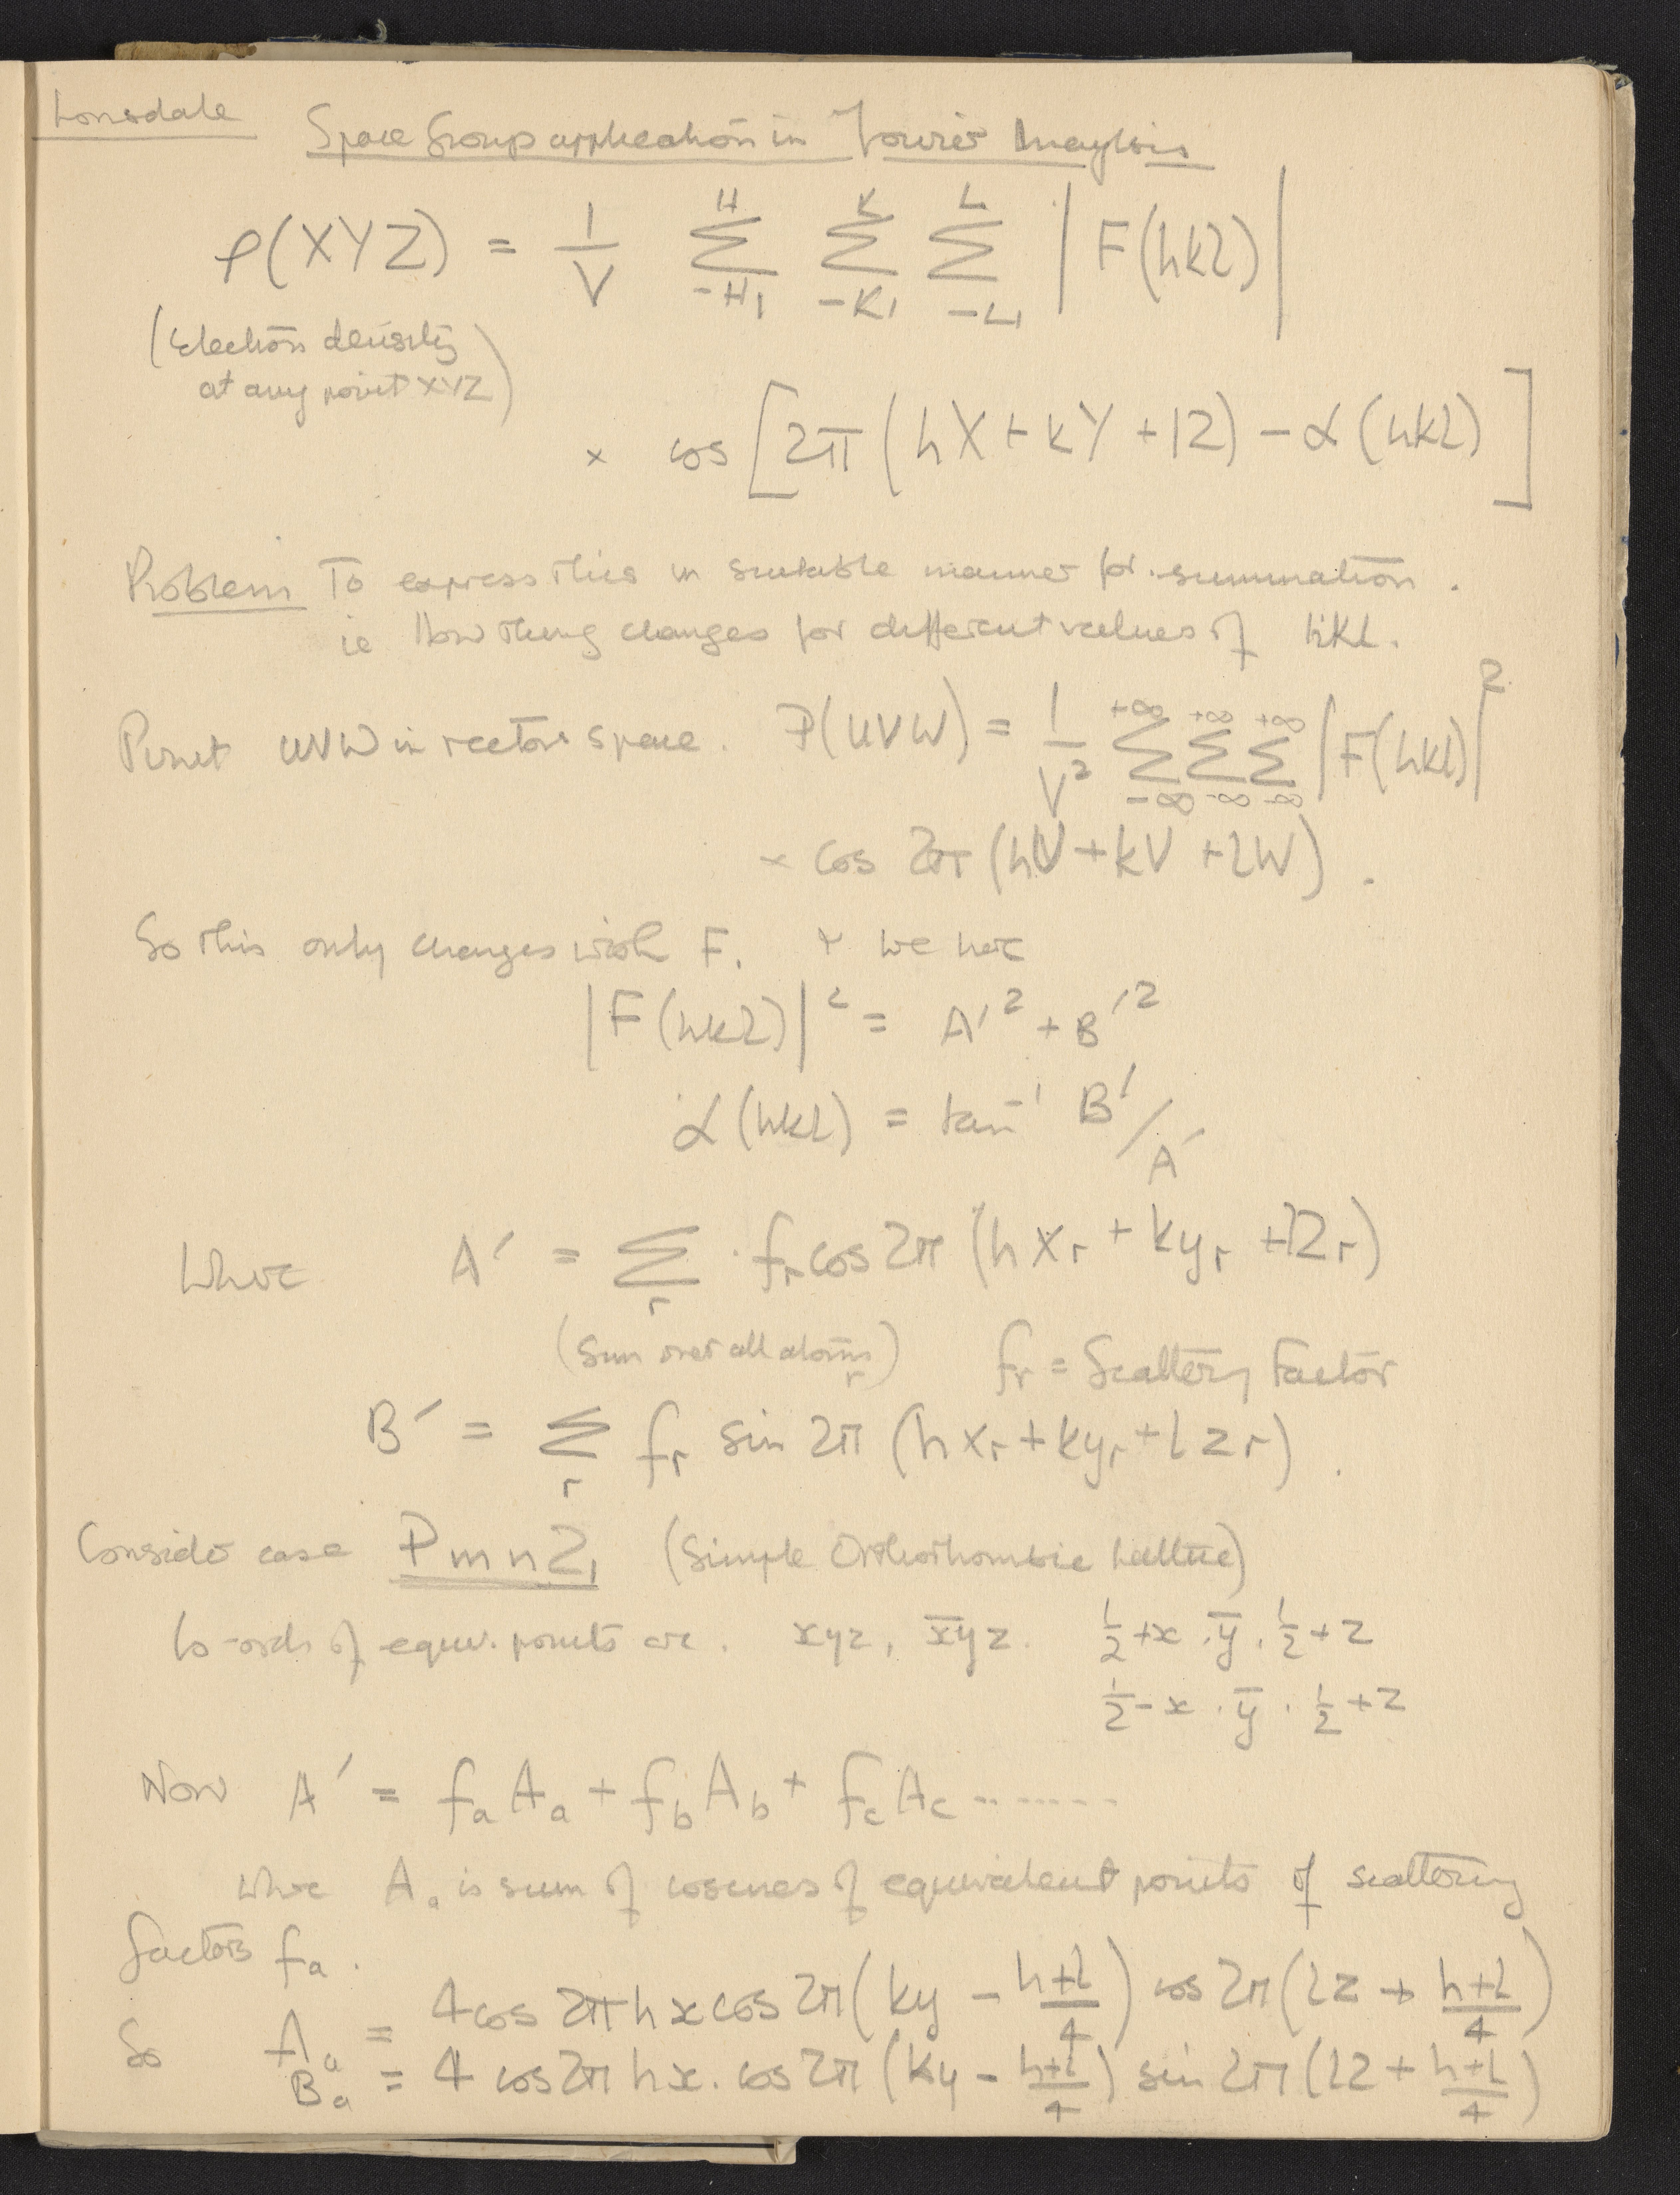 Lonsdale
Space Group application in Fourier Analysis
ρ(XYZ) = 1/V Σ_{-H1}^{H} Σ_{-K1}^{K} Σ_{-L1}^{L} |F(hkl)|
(Electron density
at any point XYZ)
× cos [2π (hX + kY + lZ) - α(hkl)]
Problem To express this in suitable manner for summation.
ie How thing changes for different values of hkl.
Point UVW in vector space. P(UVW) = 1/V² Σ_{-∞}^{+∞} Σ_{-∞}^{+∞} Σ_{-∞}^{+∞} |F(hkl)|²
× cos 2π (hU + kV + lW).
So this only changes with F. + we have
|F(hkl)|² = A′² + B′²
α(hkl) = tan⁻¹ B′/A′
Where A′ = Σ_r f_r cos 2π (hx_r + ky_r + lz_r)
(Sum over all atoms r) f_r = Scattering Factor
B′ = Σ_r f_r sin 2π (hx_r + ky_r + lz_r).
Consider case Pmn2₁ (Simple Orthorhombic Lattice)
Co-ords of equiv. points are. xyz, x̄yz. ½+x . ȳ . ½+z
½-x . ȳ . ½+z
Now A′ = f_a A_a + f_b A_b + f_c A_c .......
where A_a is sum of cosines of equivalent points of scattering
factors f_a.
So A_a = 4 cos 2π hx cos 2π (ky - (h+l)/4) cos 2π (lz + (h+l)/4)
B_a = 4 cos 2π hx . cos 2π (ky - (h+l)/4) sin 2π (lz + (h+l)/4)